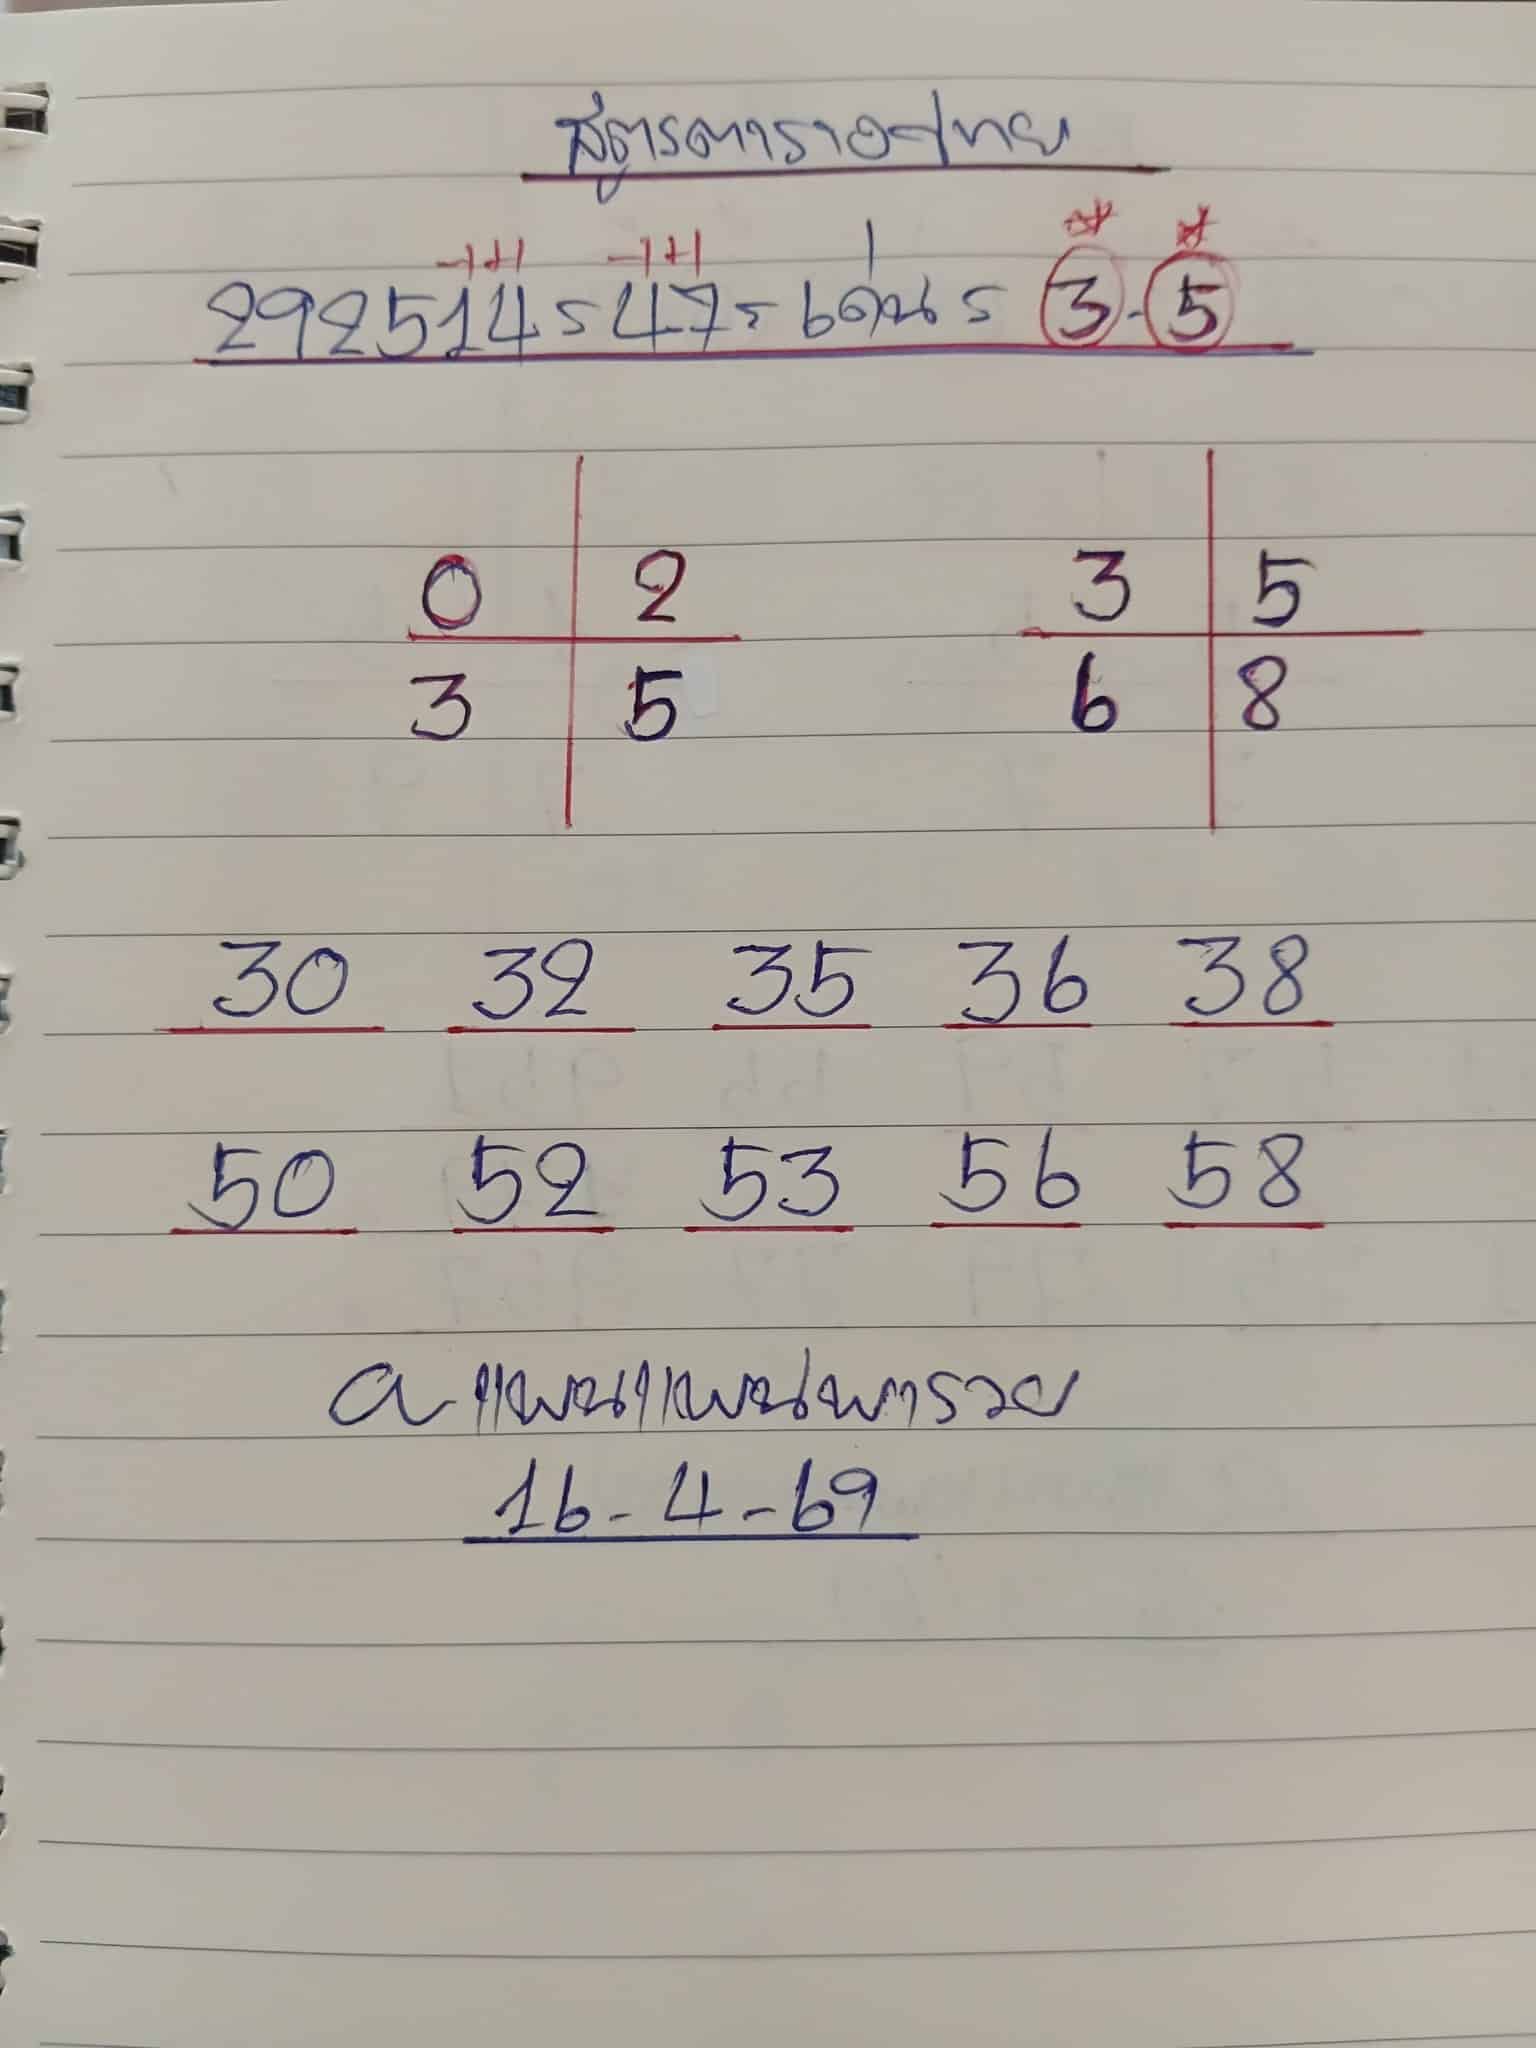 สูตรตารางไทย
-1+1 -1+1
292514 = 47 = เด่น = 3-5
0 2 3 5
3 5 6 8
30 32 35 36 38
50 52 53 56 58
a แพนแพนพารวย
16-4-69